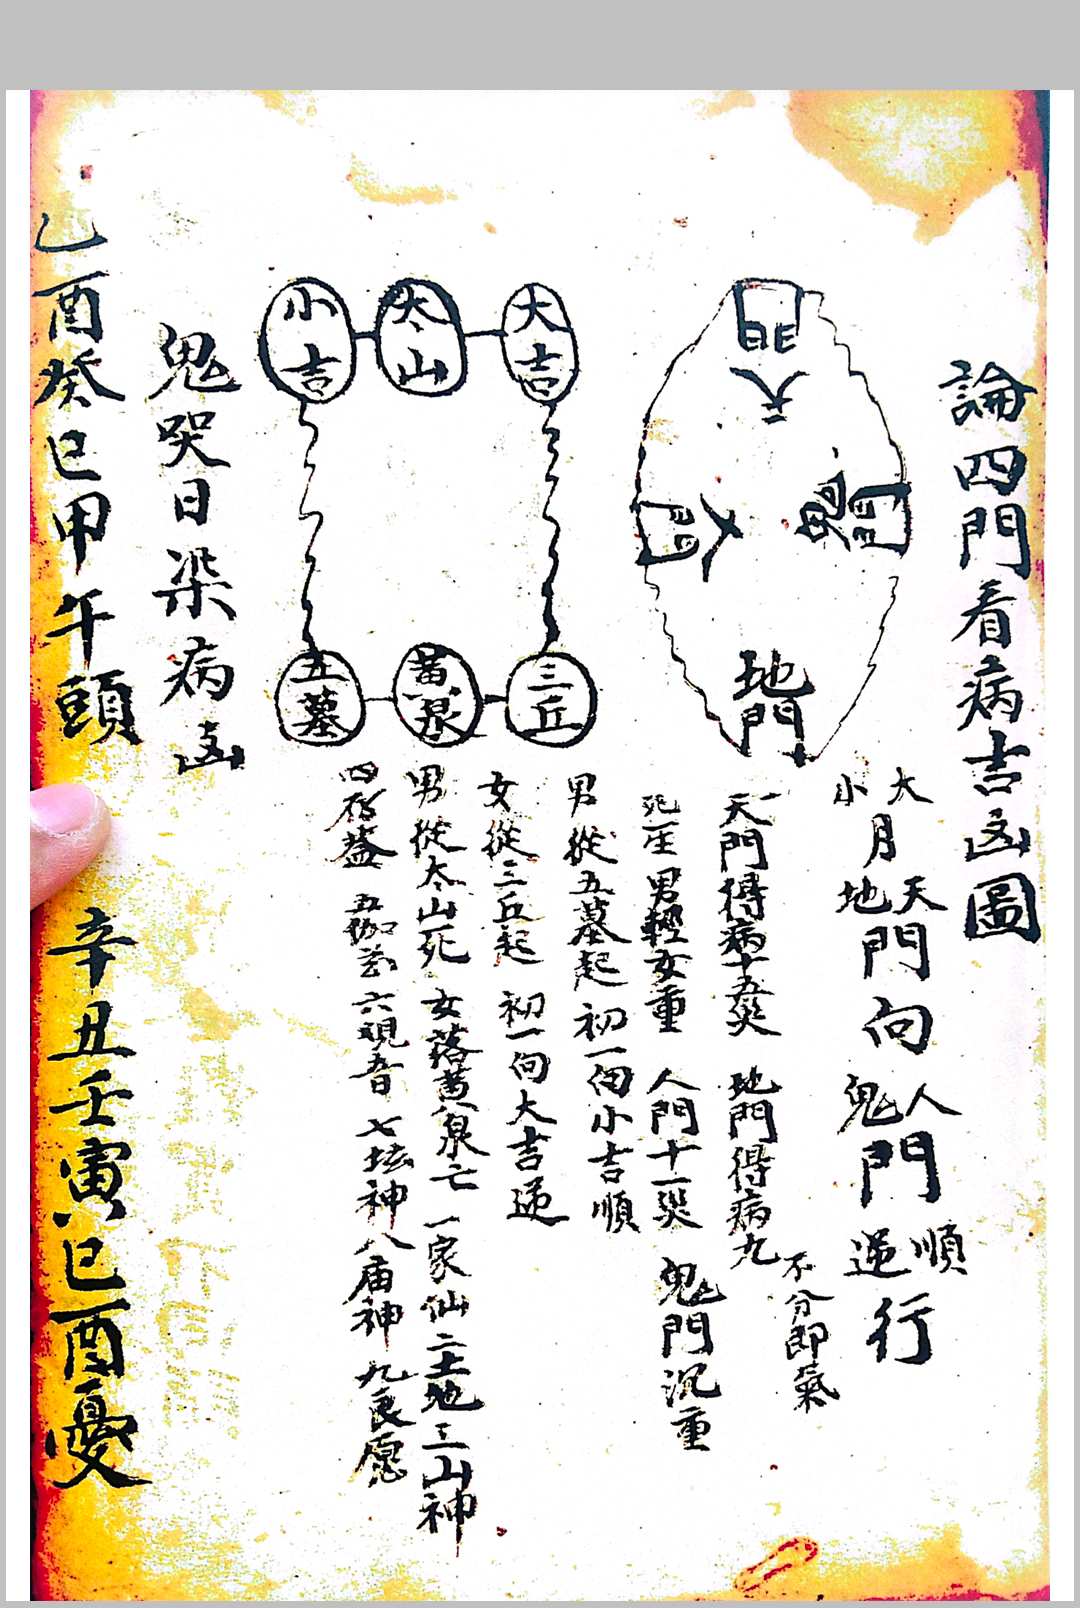 論四門看病吉凶圖
大月天門向人門順行
小月地門向鬼門逆行
天門
鬼門
人門
地門
天門得病十五災 地門得病九不分即氣
死一生男輕女重 人門十一災 鬼門沉重
大吉
太山
小吉
三丘
黄泉
五墓
男從五墓起 初一向小吉順
女從三丘起 初一向大吉逆
男從太山死 女落黄泉亡 一家仙二土地三山神
四 五伽藍 六觀音 七坛神八庙神 九良愿
鬼哭日染病凶
乙酉癸巳甲午頭 辛丑壬寅巳酉憂